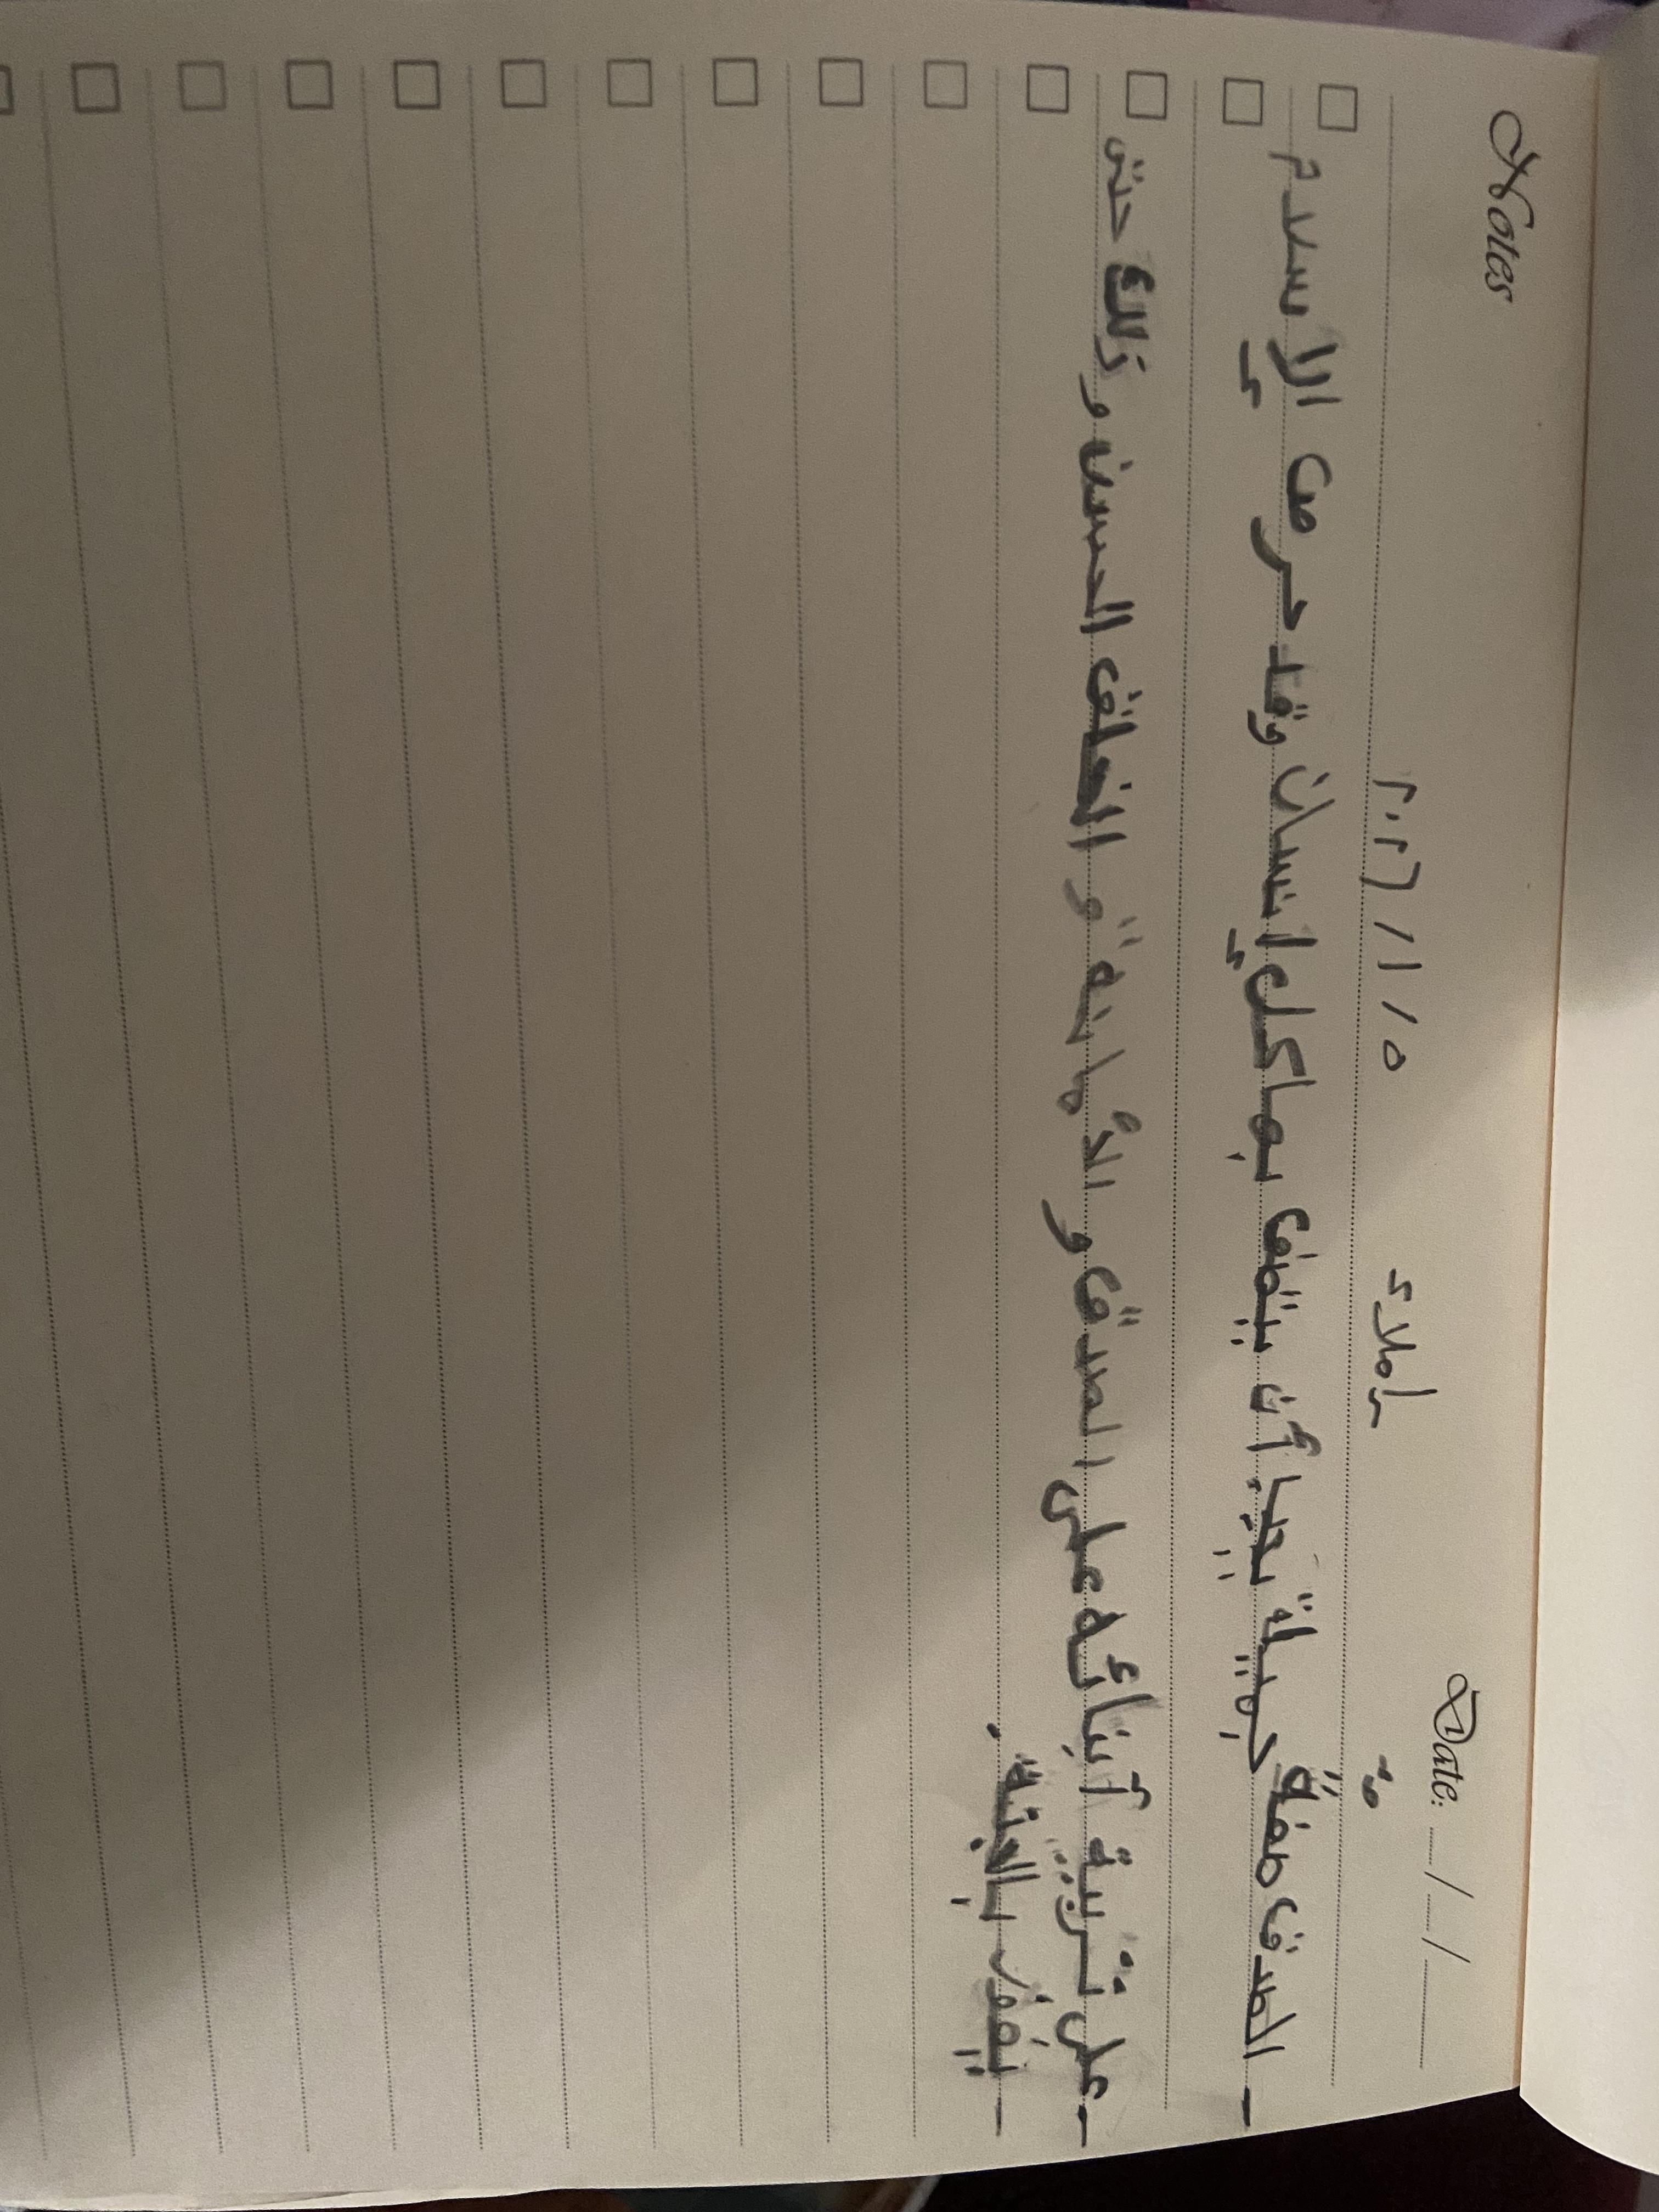 Notes
Date: __/__/____
إملاء ٢٠٢٦/١/٥
- الصدق صفة جميلة يجب أن يتصف بها كل إنسان وقد حرص الإسلام
- على تربية أبنائه على الصدق و الأمانة و الخلق الحسن و ذلك حتى
- يفوز بالجنة .